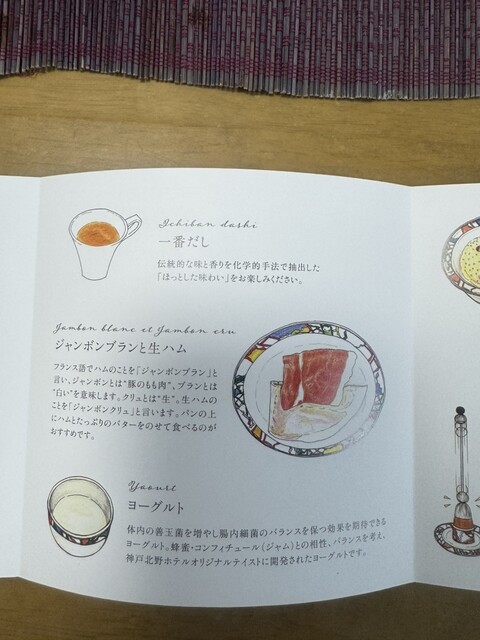 Ichiban dashi
一番だし
伝統的な味と香りを化学的手法で抽出した
「ほっとした味わい」をお楽しみください。
Jambon blanc et Jambon cru
ジャンボンブランと生ハム
フランス語でハムのことを「ジャンボンブラン」と
言い、ジャンボンとは“豚のもも肉”、ブランとは
“白い”を意味します。クリュとは“生”。生ハムの
ことを「ジャンボンクリュ」と言います。パンの上
にハムとたっぷりのバターをのせて食べるのが
おすすめです。
Yaourt
ヨーグルト
体内の善玉菌を増やし腸内細菌のバランスを保つ効果を期待できる
ヨーグルト。蜂蜜・コンフィチュール（ジャム）との相性、バランスを考え、
神戸北野ホテルオリジナルテイストに開発されたヨーグルトです。